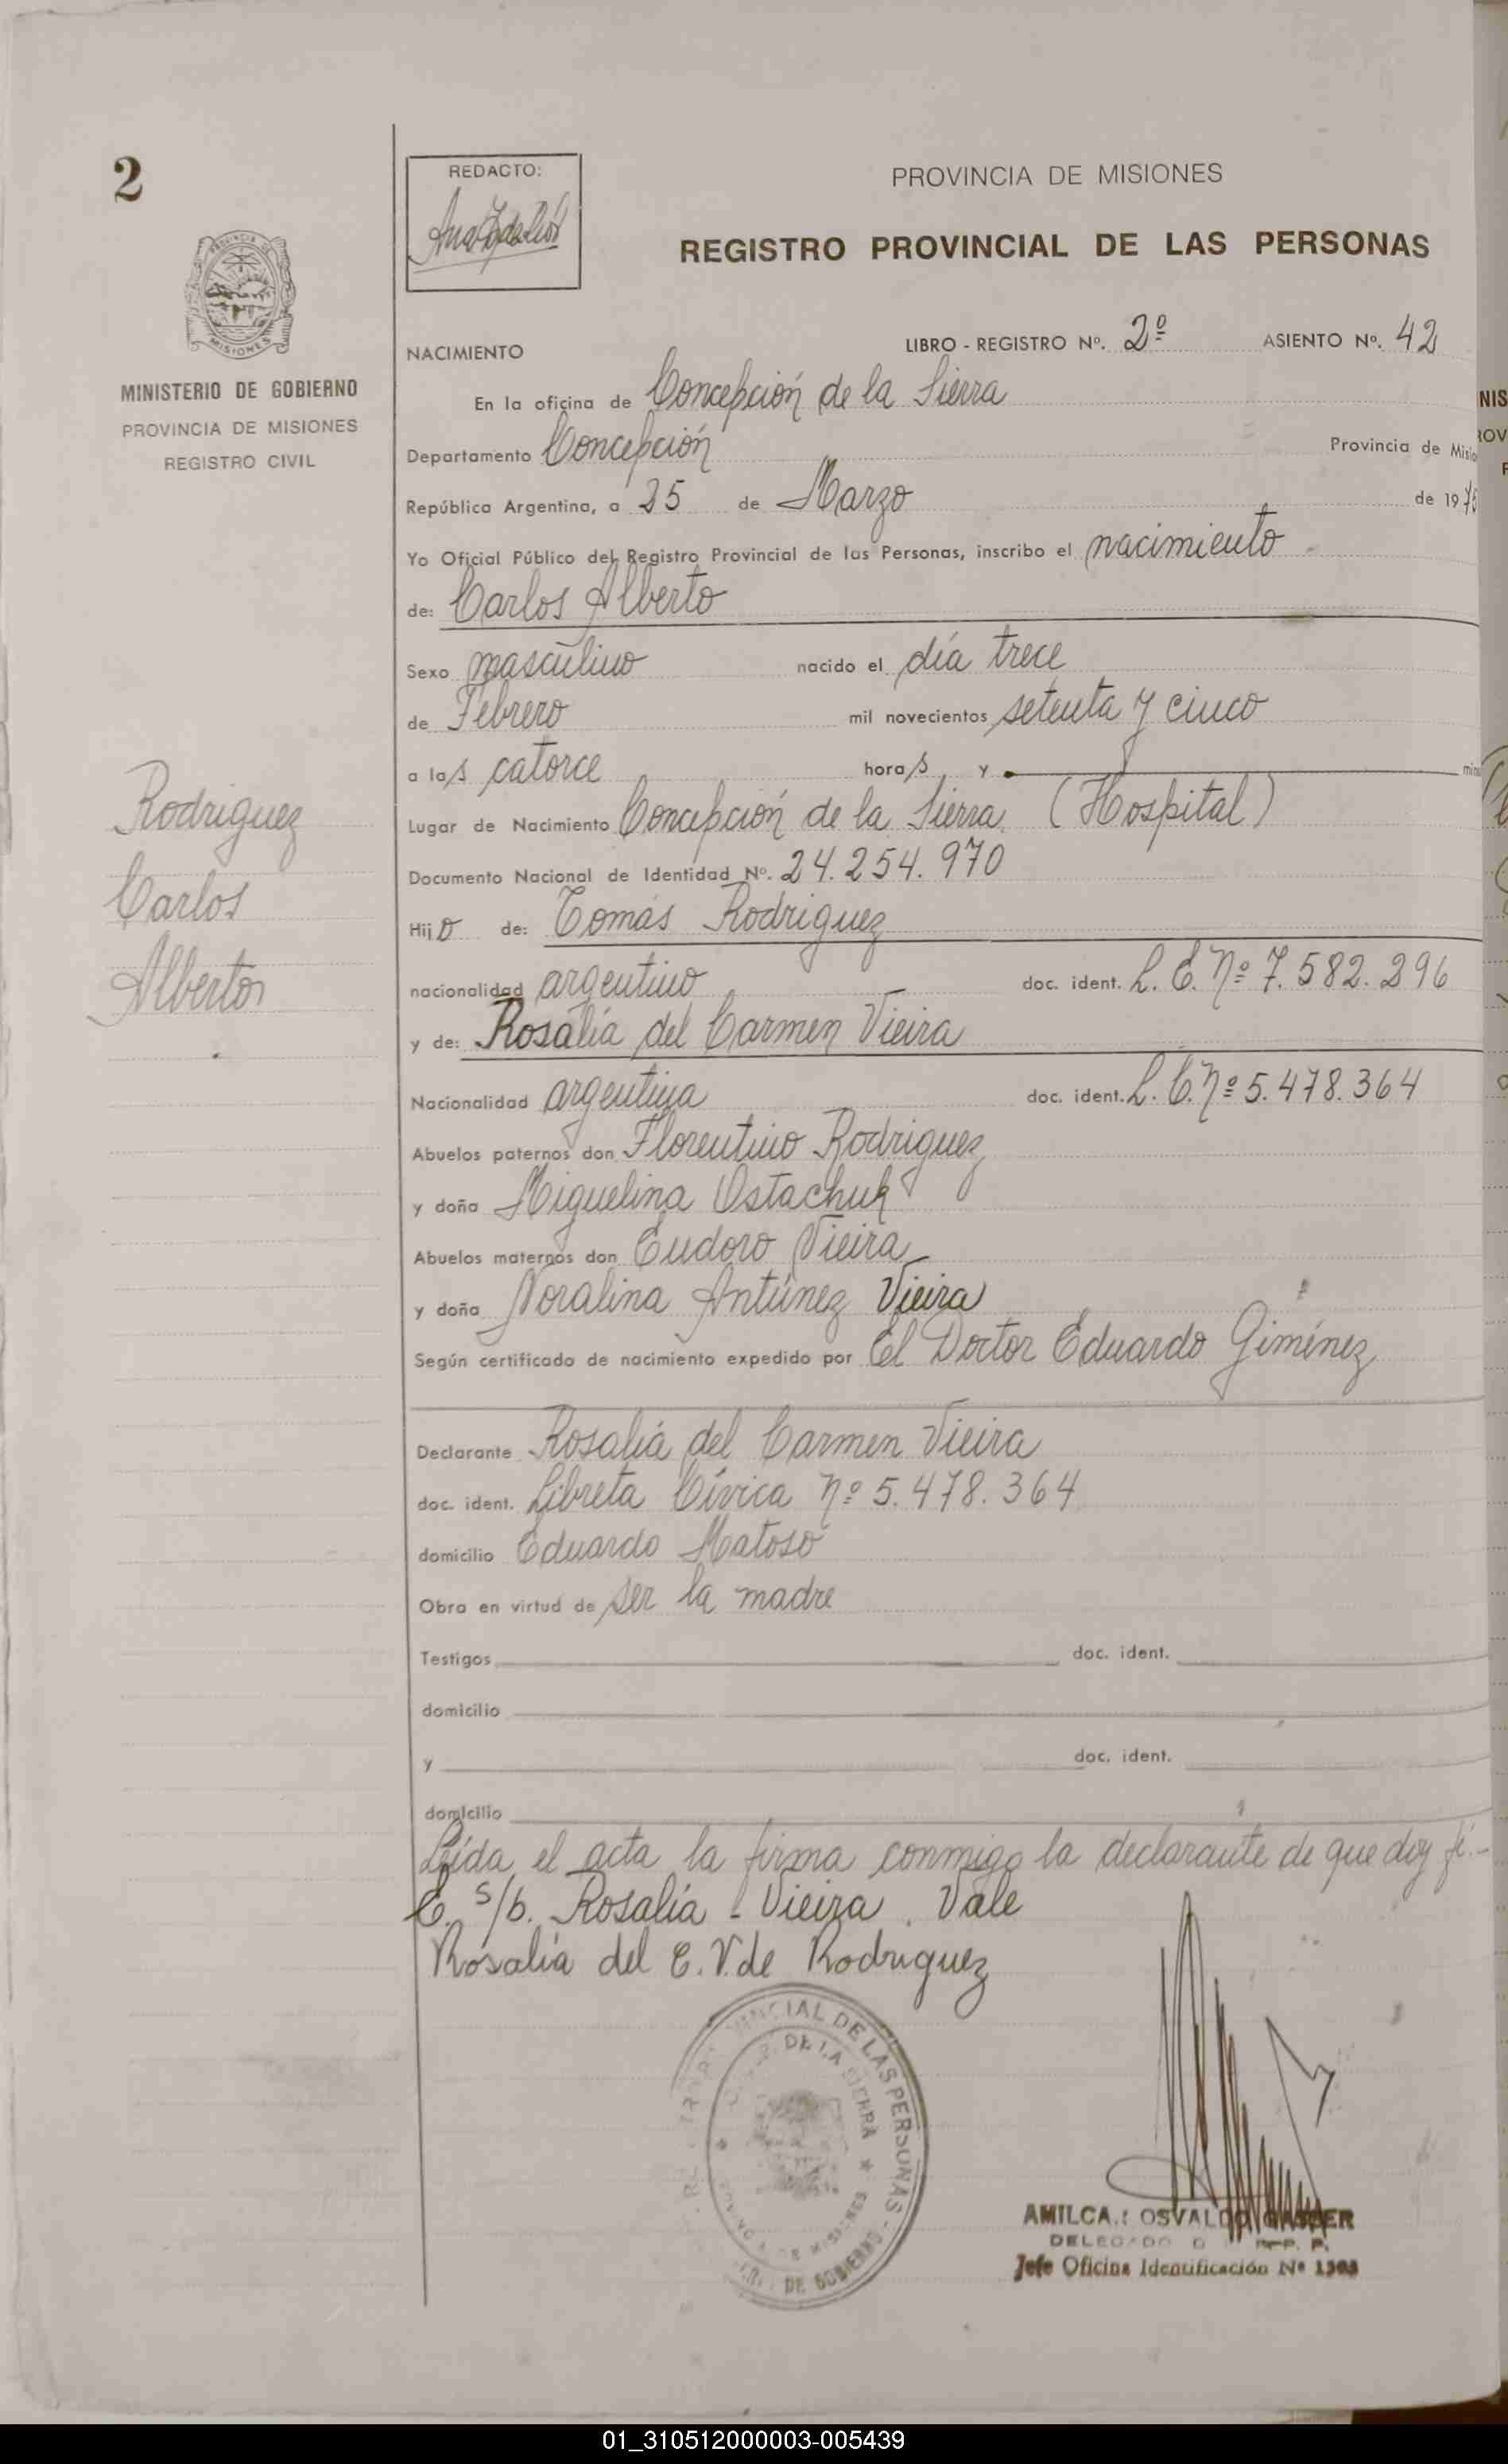 2
REDACTO:
PROVINCIA DE MISIONES
REGISTRO PROVINCIAL DE LAS PERSONAS
MISIONES
MINISTERIO DE GOBIERNO
PROVINCIA DE MISIONES
REGISTRO CIVIL
NACIMIENTO LIBRO - REGISTRO Nº. 2º ASIENTO Nº. 42
En la oficina de Concepción de la Sierra
Departamento Concepción Provincia de Misio
República Argentina, a 25 de Marzo de 1975
Yo Oficial Público del Registro Provincial de las Personas, inscribo el nacimiento
de: Carlos Alberto
Sexo masculino nacido el día trece
de Febrero mil novecientos setenta y cinco
a las catorce horas, y
Lugar de Nacimiento Concepción de la Sierra (Hospital)
Documento Nacional de Identidad Nº. 24.254.970
Hijo de: Tomás Rodriguez
nacionalidad argentino doc. ident. L. E. Nº 7.582.296
y de: Rosalía del Carmen Vieira
Nacionalidad argentina doc. ident. L. C. Nº 5.478.364
Abuelos paternos don Florentino Rodriguez
y doña Miguelina Ostachuk
Abuelos maternos don Eudoro Vieira
y doña Noralina Antúnez Vieira
Según certificado de nacimiento expedido por El Doctor Eduardo Giménez
Declarante Rosalía del Carmen Vieira
doc. ident. Libreta Cívica Nº 5.478.364
domicilio Eduardo Matoso
Obra en virtud de ser la madre
Testigos doc. ident.
domicilio
y doc. ident.
domicilio
Leída el acta la firma conmigo la declarante de que doy fé.-
E. s/b. Rosalía - Vieira. Vale
Rosalía del C. V. de Rodriguez
Rodriguez
Carlos
Alberto
VINCIAL DE LAS PERSONAS
DE LA SIERRA
DE MISIONES
DE GOBIERNO
OSVALDO GASSER
DELEGADO
Jefe Oficina Identificación Nº 1303
01_310512000003-005439